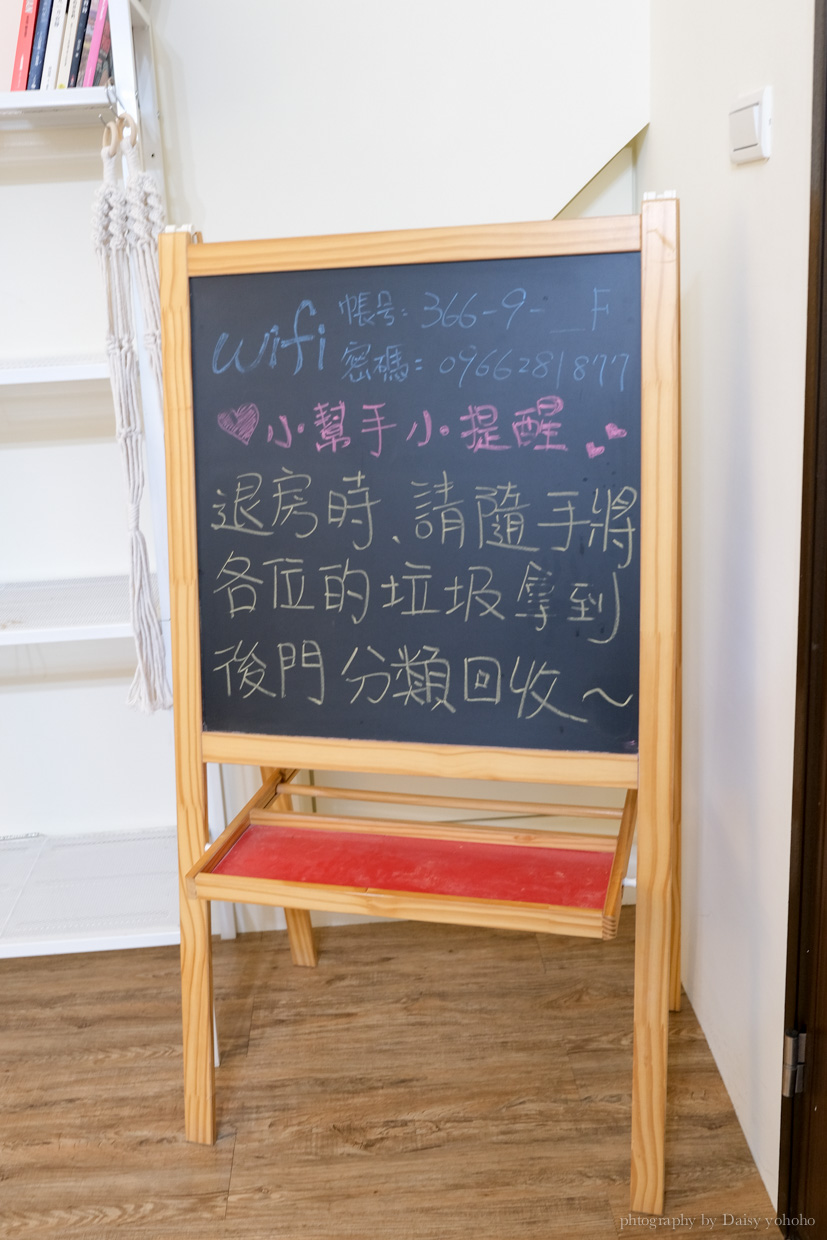 wifi 帳号: 366-9-__F
密碼: 0966281877
小幫手小提醒
退房時、請隨手將
各位的垃圾拿到
後門分類回收~
photography by Daisy yohoho